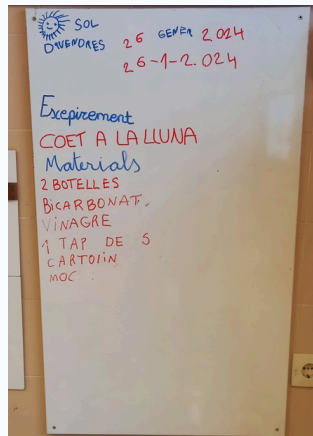 SOL
DIVENDRES 26 GENER 2024
26-1-2.024
Excepirement
COET A LA LLUNA
Materials
2 BOTELLES
BICARBONAT.
VINAGRE
1 TAP DE S
CARTOLIN
MOC